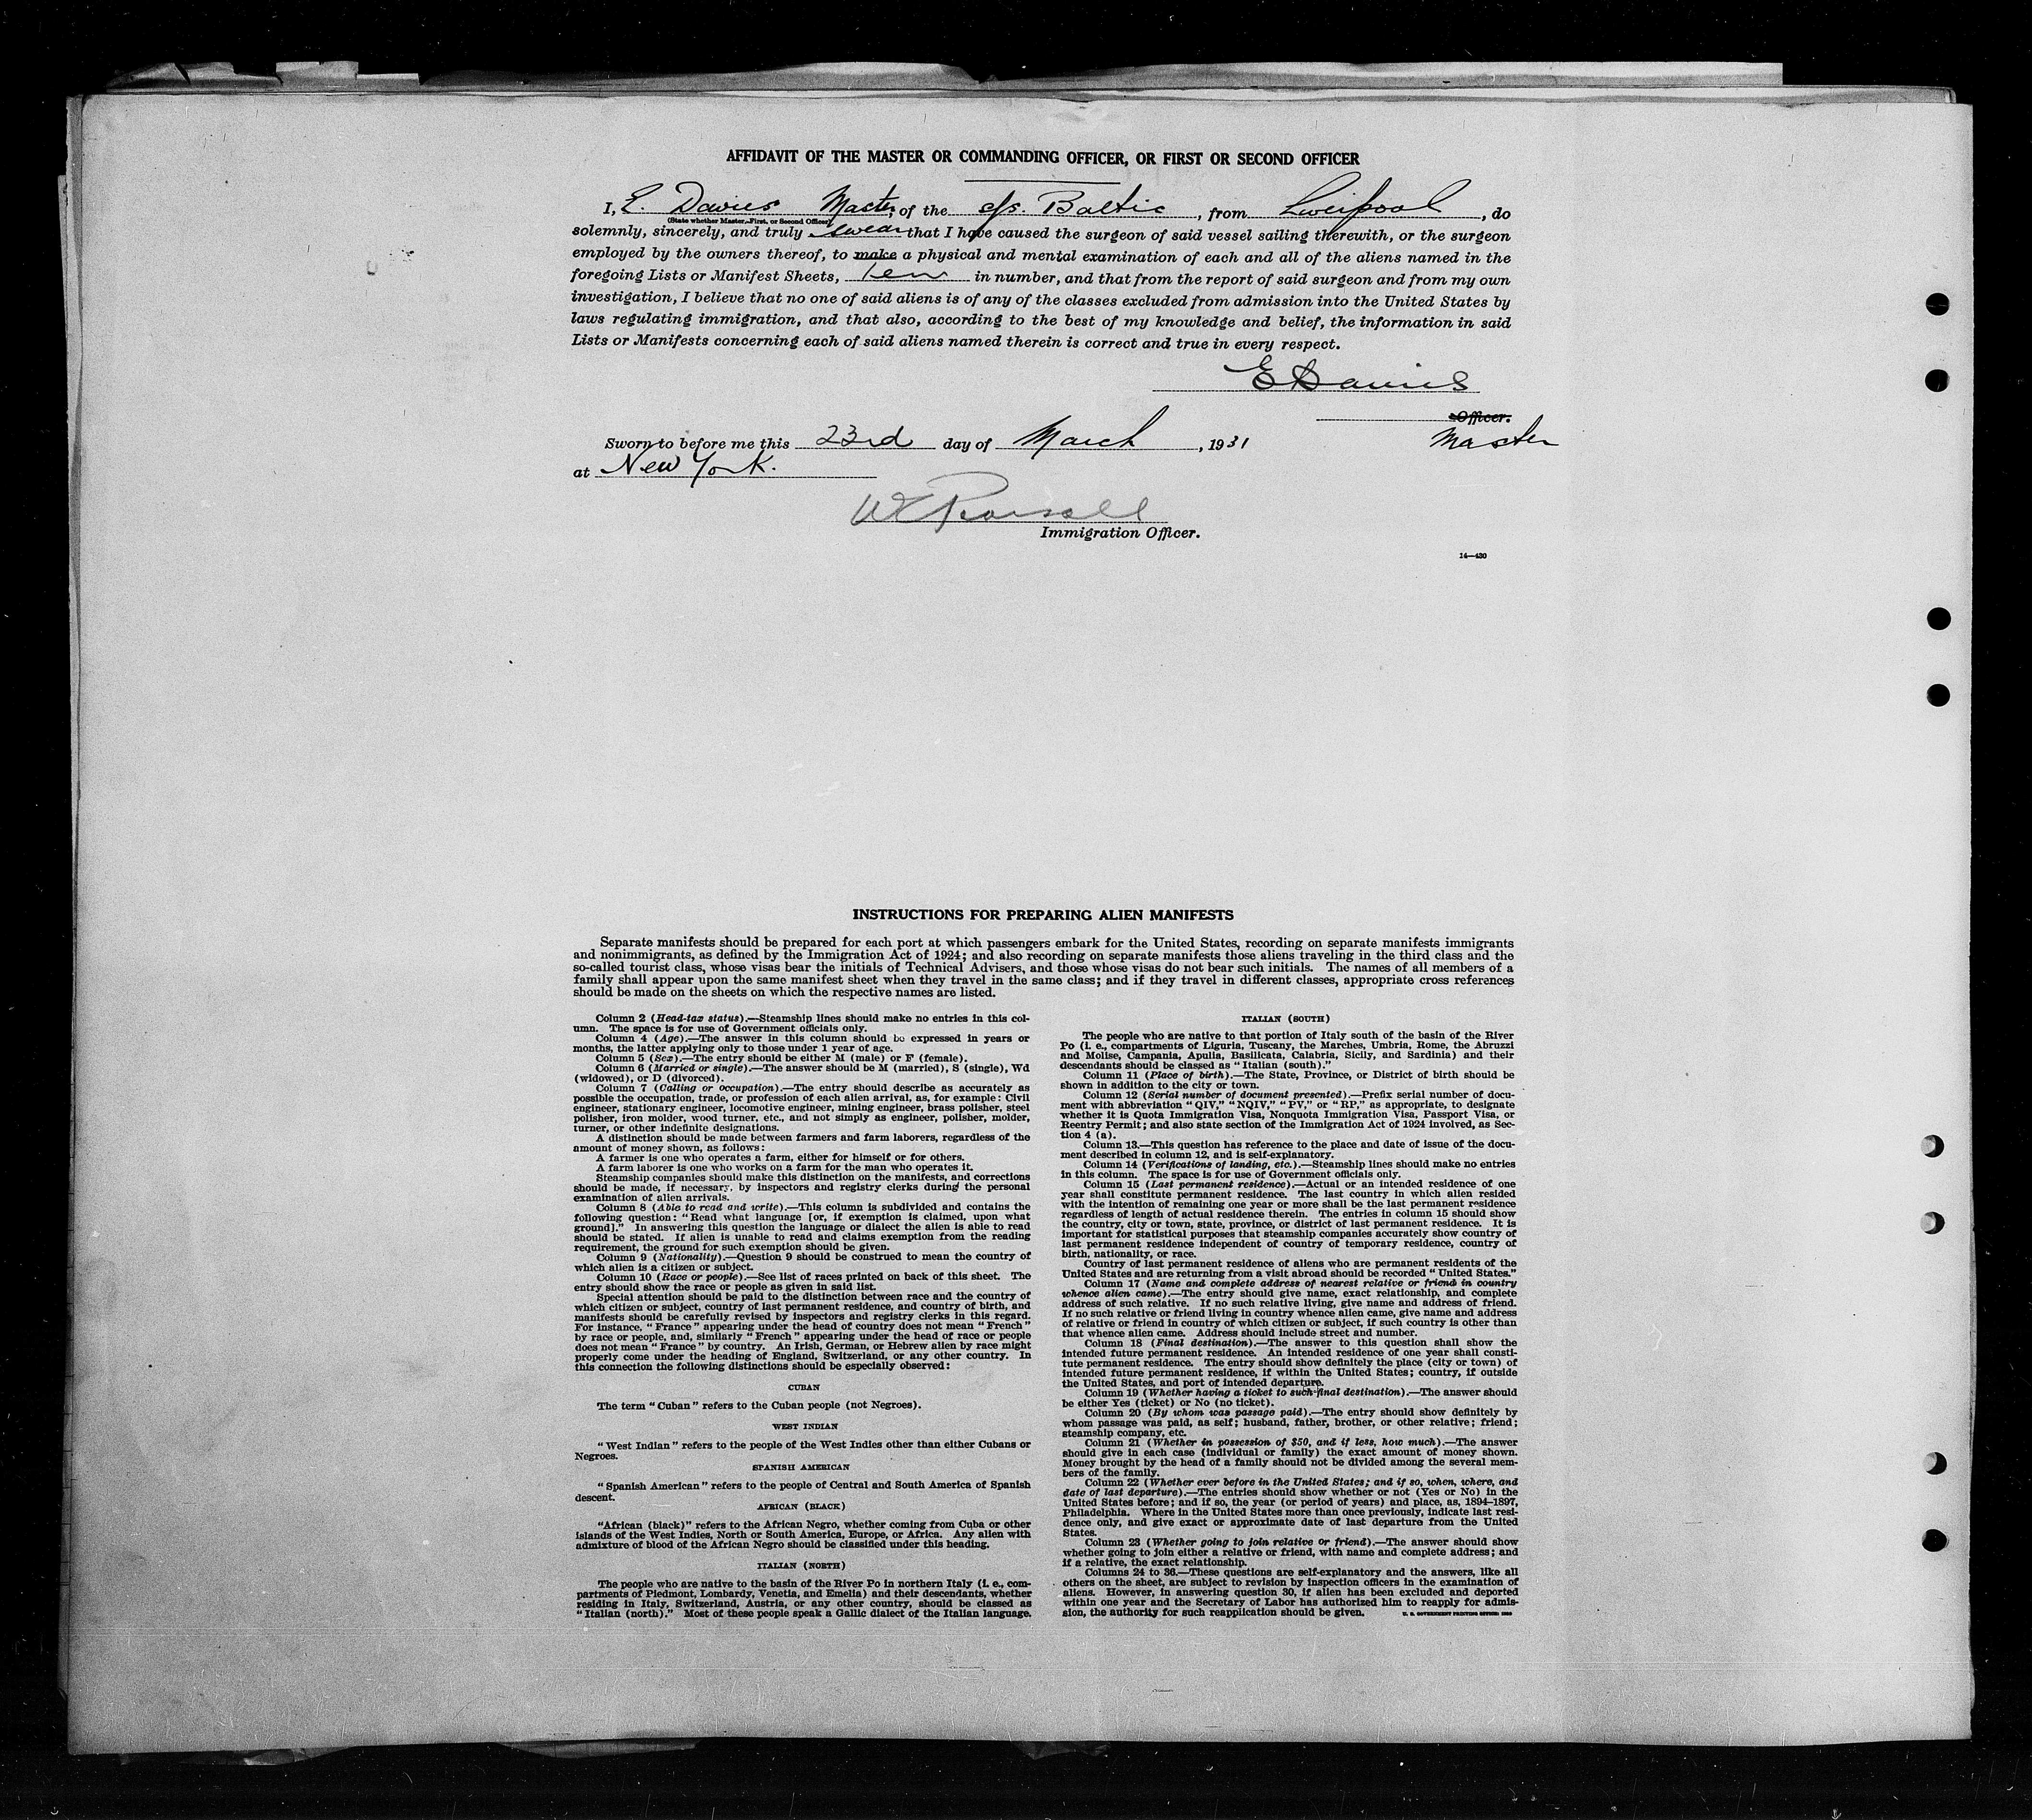 AFFIDAVIT OF THE MASTER OR COMMANDING OFFICER, OR FIRST OR SECOND OFFICER
I, E. Davies Master, of the s/s. Baltic, from Liverpool, do
(State whether Master, First, or Second Officer)
solemnly, sincerely, and truly swear that I have caused the surgeon of said vessel sailing therewith, or the surgeon
employed by the owners thereof, to make a physical and mental examination of each and all of the aliens named in the
foregoing Lists or Manifest Sheets, Ten in number, and that from the report of said surgeon and from my own
investigation, I believe that no one of said aliens is of any of the classes excluded from admission into the United States by
laws regulating immigration, and that also, according to the best of my knowledge and belief, the information in said
Lists or Manifests concerning each of said aliens named therein is correct and true in every respect.
E Davies
Officer.
Master
Sworn to before me this 23rd day of March, 1931
at New York.
Immigration Officer.
14—430
INSTRUCTIONS FOR PREPARING ALIEN MANIFESTS
Separate manifests should be prepared for each port at which passengers embark for the United States, recording on separate manifests immigrants
and nonimmigrants, as defined by the Immigration Act of 1924; and also recording on separate manifests those aliens traveling in the third class and the
so-called tourist class, whose visas bear the initials of Technical Advisers, and those whose visas do not bear such initials. The names of all members of a
family shall appear upon the same manifest sheet when they travel in the same class; and if they travel in different classes, appropriate cross references
should be made on the sheets on which the respective names are listed.
Column 2 (Head-tax status).—Steamship lines should make no entries in this col-
umn. The space is for use of Government officials only.
Column 4 (Age).—The answer in this column should be expressed in years or
months, the latter applying only to those under 1 year of age.
Column 5 (Sex).—The entry should be either M (male) or F (female).
Column 6 (Married or single).—The answer should be M (married), S (single), Wd
(widowed), or D (divorced).
Column 7 (Calling or occupation).—The entry should describe as accurately as
possible the occupation, trade, or profession of each alien arrival, as, for example: Civil
engineer, stationary engineer, locomotive engineer, mining engineer, brass polisher, steel
polisher, iron molder, wood turner, etc., and not simply as engineer, polisher, molder,
turner, or other indefinite designations.
A distinction should be made between farmers and farm laborers, regardless of the
amount of money shown, as follows:
A farmer is one who operates a farm, either for himself or for others.
A farm laborer is one who works on a farm for the man who operates it.
Steamship companies should make this distinction on the manifests, and corrections
should be made, if necessary, by inspectors and registry clerks during the personal
examination of alien arrivals.
Column 8 (Able to read and write).—This column is subdivided and contains the
following question: "Read what language [or, if exemption is claimed, upon what
ground]." In answering this question the language or dialect the alien is able to read
should be stated. If alien is unable to read and claims exemption from the reading
requirement, the ground for such exemption should be given.
Column 9 (Nationality).—Question 9 should be construed to mean the country of
which alien is a citizen or subject.
Column 10 (Race or people).—See list of races printed on back of this sheet. The
entry should show the race or people as given in said list.
Special attention should be paid to the distinction between race and the country of
which citizen or subject, country of last permanent residence, and country of birth, and
manifests should be carefully revised by inspectors and registry clerks in this regard.
For instance, "France" appearing under the head of country does not mean "French"
by race or people, and, similarly "French" appearing under the head of race or people
does not mean "France" by country. An Irish, German, or Hebrew alien by race might
properly come under the heading of England, Switzerland, or any other country. In
this connection the following distinctions should be especially observed:
CUBAN
The term "Cuban" refers to the Cuban people (not Negroes).
WEST INDIAN
"West Indian" refers to the people of the West Indies other than either Cubans or
Negroes.
SPANISH AMERICAN
"Spanish American" refers to the people of Central and South America of Spanish
descent.
AFRICAN (BLACK)
"African (black)" refers to the African Negro, whether coming from Cuba or other
islands of the West Indies, North or South America, Europe, or Africa. Any alien with
admixture of blood of the African Negro should be classified under this heading.
ITALIAN (NORTH)
The people who are native to the basin of the River Po in northern Italy (i. e., com-
partments of Piedmont, Lombardy, Venetia, and Emelia) and their descendants, whether
residing in Italy, Switzerland, Austria, or any other country, should be classed as
"Italian (north)." Most of these people speak a Gallic dialect of the Italian language.
ITALIAN (SOUTH)
The people who are native to that portion of Italy south of the basin of the River
Po (i. e., compartments of Liguria, Tuscany, the Marches, Umbria, Rome, the Abruzzi
and Molise, Campania, Apulia, Basilicata, Calabria, Sicily, and Sardinia) and their
descendants should be classed as "Italian (south)."
Column 11 (Place of birth).—The State, Province, or District of birth should be
shown in addition to the city or town.
Column 12 (Serial number of document presented).—Prefix serial number of docu-
ment with abbreviation "QIV," "NQIV," "PV," or "RP," as appropriate, to designate
whether it is Quota Immigration Visa, Nonquota Immigration Visa, Passport Visa, or
Reentry Permit; and also state section of the Immigration Act of 1924 involved, as Sec-
tion 4 (a).
Column 13.—This question has reference to the place and date of issue of the docu-
ment described in column 12, and is self-explanatory.
Column 14 (Verifications of landing, etc.).—Steamship lines should make no entries
in this column. The space is for use of Government officials only.
Column 15 (Last permanent residence).—Actual or an intended residence of one
year shall constitute permanent residence. The last country in which alien resided
with the intention of remaining one year or more shall be the last permanent residence
regardless of length of actual residence therein. The entries in column 15 should show
the country, city or town, state, province, or district of last permanent residence. It is
important for statistical purposes that steamship companies accurately show country of
last permanent residence independent of country of temporary residence, country of
birth, nationality, or race.
Country of last permanent residence of aliens who are permanent residents of the
United States and are returning from a visit abroad should be recorded "United States."
Column 17 (Name and complete address of nearest relative or friend in country
whence alien came).—The entry should give name, exact relationship, and complete
address of such relative. If no such relative living, give name and address of friend.
If no such relative or friend living in country whence alien came, give name and address
of relative or friend in country of which citizen or subject, if such country is other than
that whence alien came. Address should include street and number.
Column 18 (Final destination).—The answer to this question shall show the
intended future permanent residence. An intended residence of one year shall consti-
tute permanent residence. The entry should show definitely the place (city or town) of
intended future permanent residence, if within the United States; country, if outside
the United States, and port of intended departure.
Column 19 (Whether having a ticket to such final destination).—The answer should
be either Yes (ticket) or No (no ticket).
Column 20 (By whom was passage paid).—The entry should show definitely by
whom passage was paid, as self; husband, father, brother, or other relative; friend;
steamship company, etc.
Column 21 (Whether in possession of $50, and if less, how much).—The answer
should give in each case (individual or family) the exact amount of money shown.
Money brought by the head of a family should not be divided among the several mem-
bers of the family.
Column 22 (Whether ever before in the United States; and if so, when, where, and
date of last departure).—The entries should show whether or not (Yes or No) in the
United States before; and if so, the year (or period of years) and place, as, 1894–1897,
Philadelphia. Where in the United States more than once previously, indicate last resi-
dence only, and give exact or approximate date of last departure from the United
States.
Column 23 (Whether going to join relative or friend).—The answer should show
whether going to join either a relative or friend, with name and complete address; and
if a relative, the exact relationship.
Columns 24 to 36.—These questions are self-explanatory and the answers, like all
others on the sheet, are subject to revision by inspection officers in the examination of
aliens. However, in answering question 30, if alien has been excluded and deported
within one year and the Secretary of Labor has authorized him to reapply for admis-
sion, the authority for such reapplication should be given.
U. S. GOVERNMENT PRINTING OFFICE